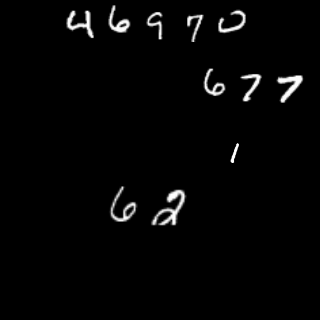 46970
677
1
62